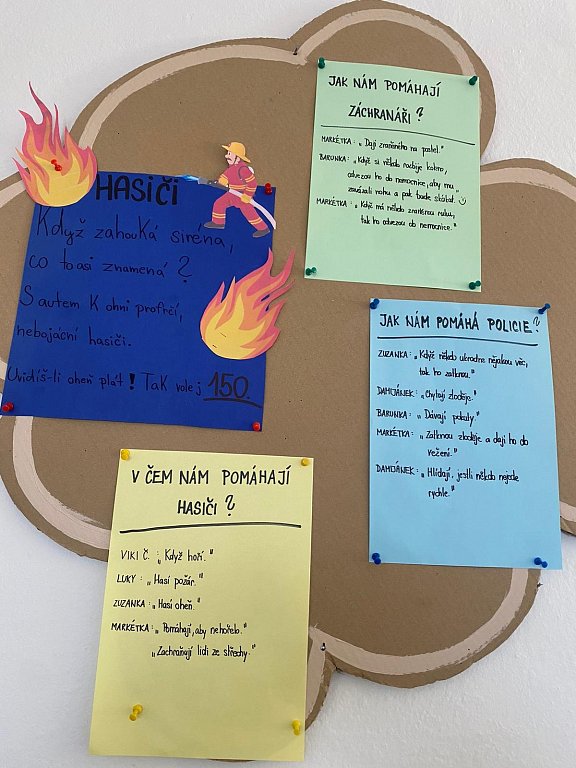 HASIČI
Když zahouká sirena,
co to asi znamená?
S autem k ohni profrčí,
nebojácní hasiči.
Uvidíš-li oheň plát! Tak volej 150.
JAK NÁM POMÁHAJÍ
ZÁCHRANÁŘI?
MARKÉTKA: „Dají zraněného na postel."
BARUNKA: „Když si někdo rozbije koleno,
odvezou ho do nemocnice, aby mu
zavázali nohu a pak bude skákat."
MARKÉTKA: „Když má někdo zraněnou ruku,
tak ho odvezou do nemocnice."
JAK NÁM POMÁHÁ POLICIE?
ZUZANKA: „Když někdo ukradne nějakou věc,
tak ho zatknou."
DAMIJÁNEK: „Chytají zloděje."
BARUNKA: „Dávají pokuty."
MARKÉTKA: „Zatknou zloděje a dají ho do
vězení."
DAMIJÁNEK: „Hlídají, jestli někdo nejede
rychle."
V ČEM NÁM POMÁHAJÍ
HASIČI?
VIKI Č.: „Když hoří."
LUKY: „Hasí požár."
ZUZANKA: „Hasí oheň."
MARKÉTKA: „Pomáhají, aby nehořelo."
„Zachraňují lidi ze střechy."